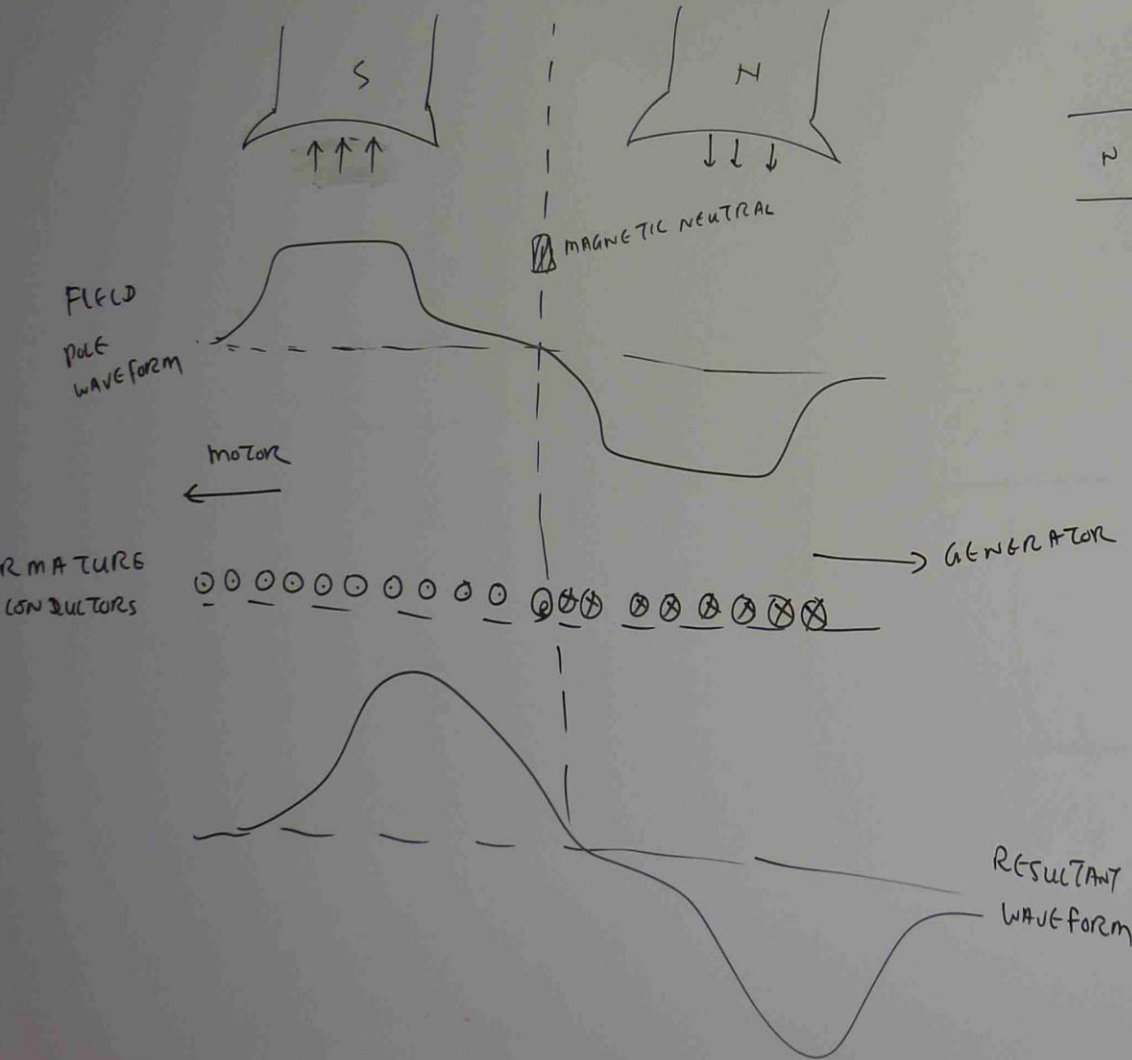 S
N
N
MAGNETIC NEUTRAL
FIELD
POLE
WAVEFORM
MOTOR
GENERATOR
RMATURE
CONDUCTORS
RESULTANT
WAVEFORM